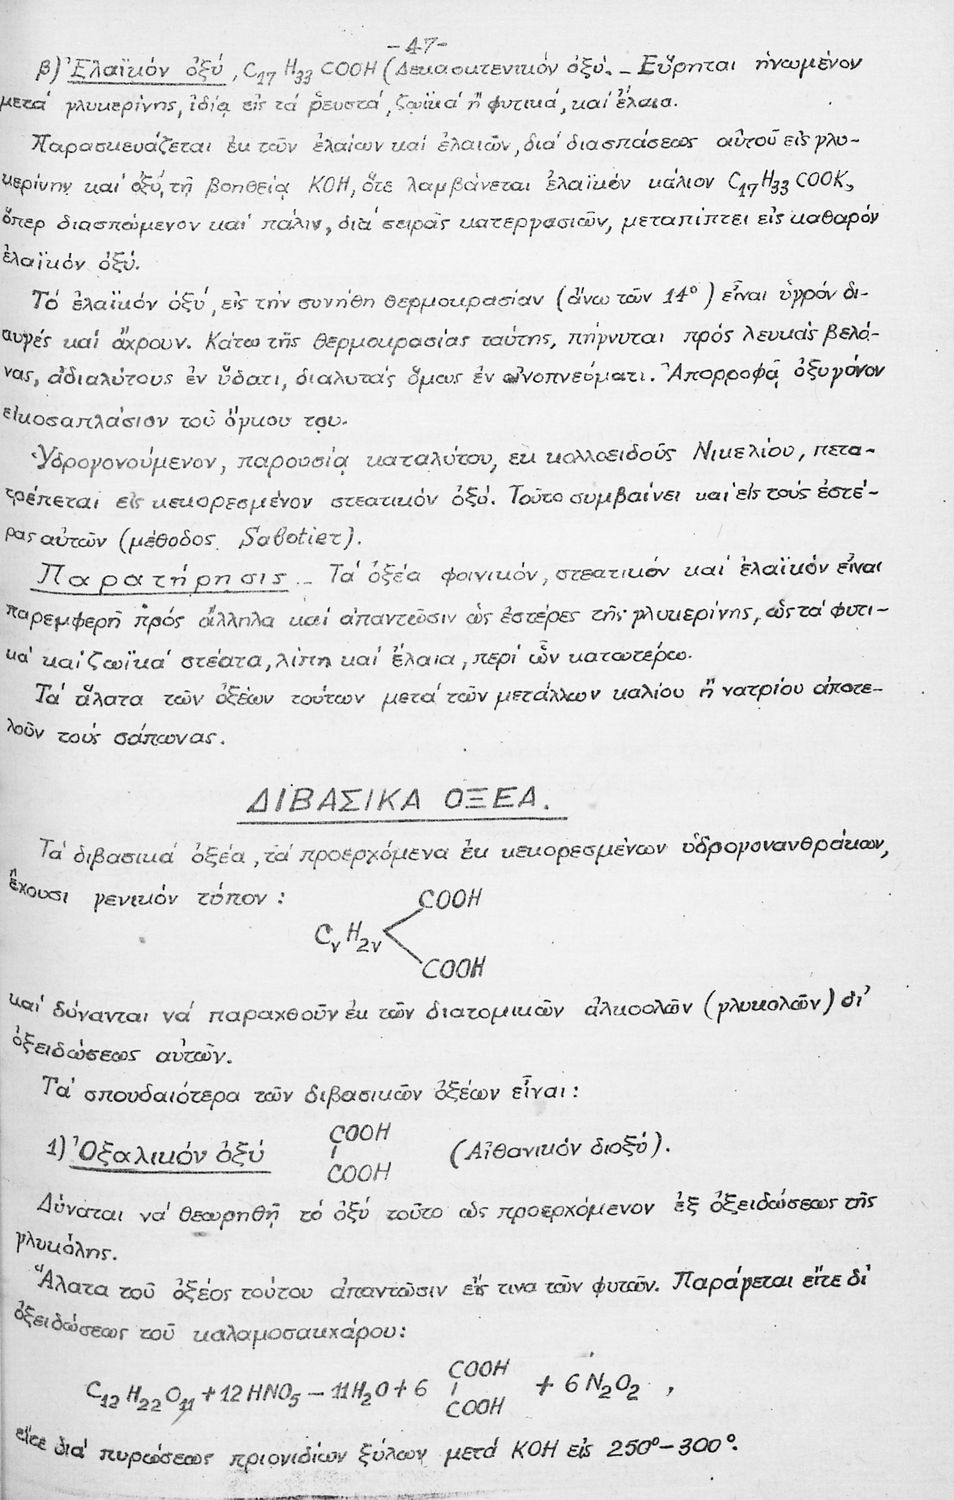 -47-
β) Ἐλαϊκόν ὀξύ, C17 H33 COOH (Δεκαοκτενικόν ὀξύ. _ Εὕρηται ἡνωμένον
μετά γλυκερίνης, ἰδίᾳ εἰς τά ῥευστά, ζωϊκά ἤ φυτικά, καί ἔλαια.
Παρασκευάζεται ἐκ τῶν ἐλαίων καί ἐλαιῶν, διά διασπάσεως αὐτοῦ εἰς γλυ-
κερίνην καί ὀξύ, τῇ βοηθείᾳ KOH, ὅτε λαμβάνεται ἐλαϊκόν κάλιον C17H33 COOK,
ὅπερ διασπώμενον καί πάλιν, διά σειρᾶς κατεργασιῶν, μεταπίπτει εἰς καθαρόν
ἐλαϊκόν ὀξύ.
Τό ἐλαϊκόν ὀξύ, εἰς τήν συνήθη θερμοκρασίαν (ἄνω τῶν 14°) εἶναι ὑγρόν δι-
αυγές καί ἄχρουν. Κάτω τῆς θερμοκρασίας ταύτης, πήγνυται πρός λευκάς βελό-
νας, ἀδιαλύτους ἐν ὕδατι, διαλυτάς ὅμως ἐν οἰνοπνεύματι. Ἀπορροφᾷ ὀξυγόνον
εἰκοσαπλάσιον τοῦ ὄγκου του.
Ὑδρογονούμενον, παρουσίᾳ καταλύτου, ἐκ κολλοειδοῦς Νικελίου, μετα-
τρέπεται εἰς κεκορεσμένον στεατικόν ὀξύ. Τοῦτο συμβαίνει καί εἰς τούς ἐστέ-
ρας αὐτῶν (μέθοδος Sabotier).
Παρατήρησις _ Τά ὀξέα φοινικόν, στεατικόν καί ἐλαϊκόν εἶναι
παρεμφερῆ πρός ἄλληλα καί ἀπαντῶσιν ὡς ἐστέρες τῆς γλυκερίνης, ὡς τά φυτι-
κά καί ζωϊκά στέατα, λίπη καί ἔλαια, περί ὧν κατωτέρω.
Τά ἅλατα τῶν ὀξέων τούτων μετά τῶν μετάλλων καλίου ἤ νατρίου ἀποτε-
λοῦν τούς σάπωνας.
ΔΙΒΑΣΙΚΑ ΟΞΕΑ.
Τά διβασικά ὀξέα, τά προερχόμενα ἐκ κεκορεσμένων ὑδρογονανθράκων,
ἔχουσι γενικόν τύπον :
COOH
Cν H2ν
COOH
καί δύνανται νά παραχθοῦν ἐκ τῶν διατομικῶν ἀλκοολῶν (γλυκολῶν) δι'
ὀξειδώσεως αὐτῶν.
Τά σπουδαιότερα τῶν διβασικῶν ὀξέων εἶναι :
1) Ὀξαλικόν ὀξύ COOH (Αἰθανικόν διοξύ).
COOH
Δύναται νά θεωρηθῇ τό ὀξύ τοῦτο ὡς προερχόμενον ἐξ ὀξειδώσεως τῆς
γλυκόλης.
Ἅλατα τοῦ ὀξέος τούτου ἀπαντῶσιν εἴς τινα τῶν φυτῶν. Παράγεται εἴτε δι'
ὀξειδώσεως τοῦ καλαμοσακχάρου :
C12 H22 O11 + 12 HNO5 – 11H2O + 6 COOH + 6 N2O2 ,
COOH
εἴτε διά πυρώσεως πριονιδίων ξύλων μετά KOH εἰς 250°–300°.